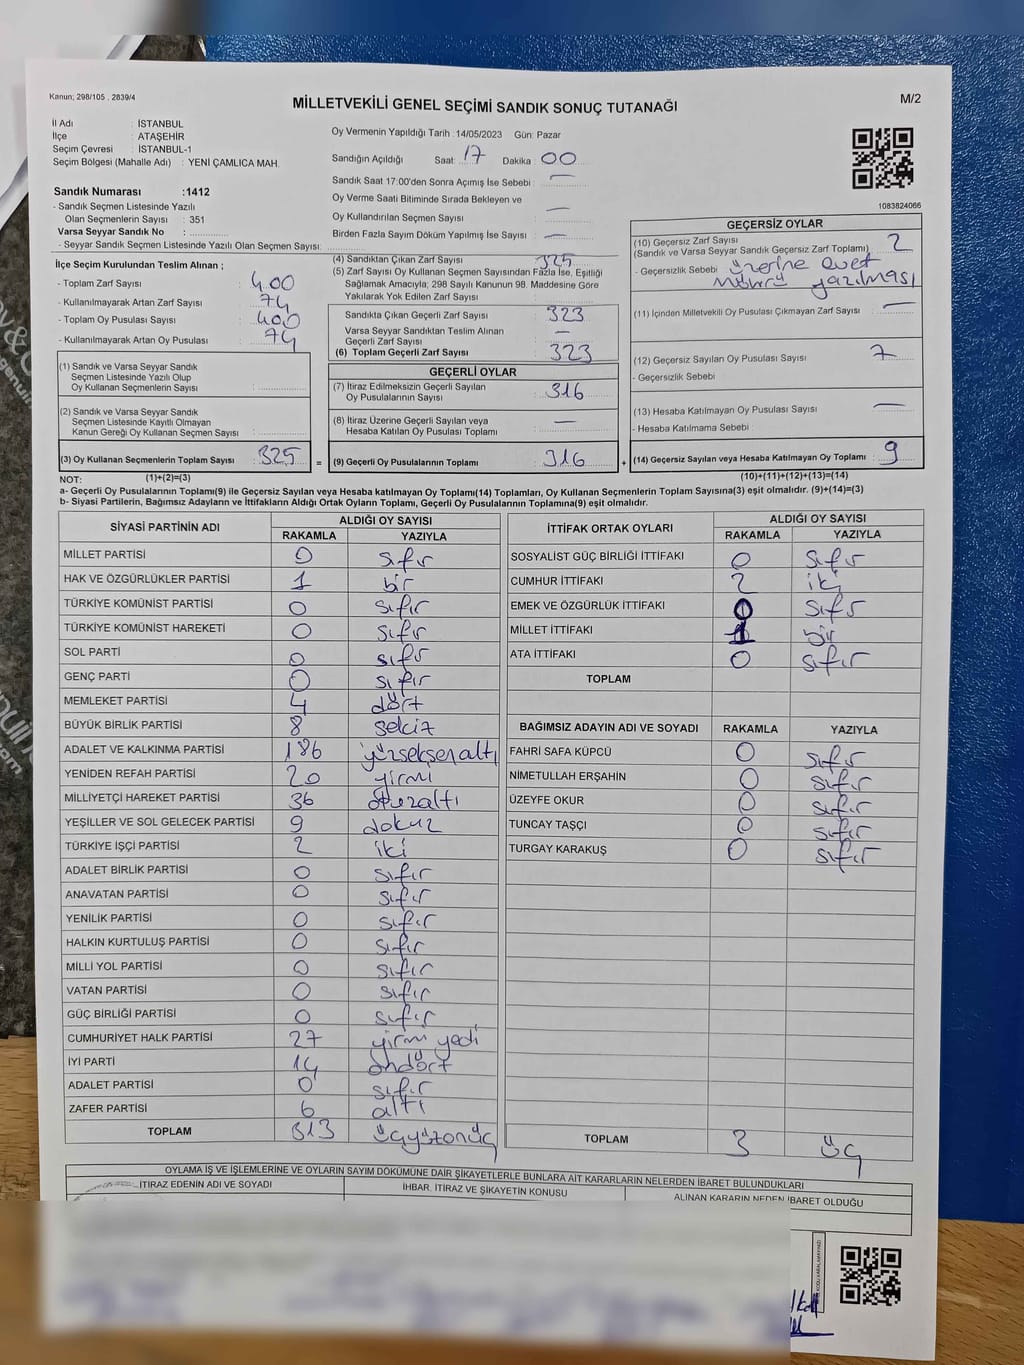 Kanun; 298/105 , 2839/4
MİLLETVEKİLİ GENEL SEÇİMİ SANDIK SONUÇ TUTANAĞI
M/2
İl Adı : İSTANBUL
İlçe : ATAŞEHİR
Seçim Çevresi : İSTANBUL-1
Seçim Bölgesi (Mahalle Adı) : YENİ ÇAMLICA MAH.
Sandık Numarası :1412
- Sandık Seçmen Listesinde Yazılı
Olan Seçmenlerin Sayısı : 351
Varsa Seyyar Sandık No :
- Seyyar Sandık Seçmen Listesinde Yazılı Olan Seçmen Sayısı:
İlçe Seçim Kurulundan Teslim Alınan ;
- Toplam Zarf Sayısı : 400
- Kullanılmayarak Artan Zarf Sayısı : 74
- Toplam Oy Pusulası Sayısı : 400
- Kullanılmayarak Artan Oy Pusulası : 74
(1) Sandık ve Varsa Seyyar Sandık
Seçmen Listesinde Yazılı Olup
Oy Kullanan Seçmenlerin Sayısı :
(2) Sandık ve Varsa Seyyar Sandık
Seçmen Listesinde Kayıtlı Olmayan
Kanun Gereği Oy Kullanan Seçmen Sayısı :
(3) Oy Kullanan Seçmenlerin Toplam Sayısı : 325 =
(1)+(2)=(3)
Oy Vermenin Yapıldığı Tarih : 14/05/2023 Gün: Pazar
Sandığın Açıldığı Saat: 17 Dakika : 00
Sandık Saat 17:00'den Sonra Açımış İse Sebebi : —
Oy Verme Saati Bitiminde Sırada Bekleyen ve
Oy Kullandırılan Seçmen Sayısı : —
Birden Fazla Sayım Döküm Yapılmış İse Sayısı : —
(4) Sandıktan Çıkan Zarf Sayısı : 325
(5) Zarf Sayısı Oy Kullanan Seçmen Sayısından Fazla İse, Eşitliği
Sağlamak Amacıyla; 298 Sayılı Kanunun 98. Maddesine Göre
Yakılarak Yok Edilen Zarf Sayısı :
Sandıkta Çıkan Geçerli Zarf Sayısı : 323
Varsa Seyyar Sandıktan Teslim Alınan
Geçerli Zarf Sayısı : —
(6) Toplam Geçerli Zarf Sayısı : 323
GEÇERLİ OYLAR
(7) İtiraz Edilmeksizin Geçerli Sayılan
Oy Pusulalarının Sayısı : 316
(8) İtiraz Üzerine Geçerli Sayılan veya
Hesaba Katılan Oy Pusulası Toplamı : —
(9) Geçerli Oy Pusulalarının Toplamı : 316 +
1083824066
GEÇERSİZ OYLAR
(10) Geçersiz Zarf Sayısı : 2
(Sandık ve Varsa Seyyar Sandık Geçersiz Zarf Toplamı)
- Geçersizlik Sebebi : üzerine evet
mührü yazılması
(11) İçinden Milletvekili Oy Pusulası Çıkmayan Zarf Sayısı : —
(12) Geçersiz Sayılan Oy Pusulası Sayısı : 7
- Geçersizlik Sebebi
(13) Hesaba Katılmayan Oy Pusulası Sayısı : —
- Hesaba Katılmama Sebebi
(14) Geçersiz Sayılan veya Hesaba Katılmayan Oy Toplamı : 9
(10)+(11)+(12)+(13)=(14)
NOT:
a- Geçerli Oy Pusulalarının Toplamı(9) ile Geçersiz Sayılan veya Hesaba katılmayan Oy Toplamı(14) Toplamları, Oy Kullanan Seçmenlerin Toplam Sayısına(3) eşit olmalıdır. (9)+(14)=(3)
b- Siyasi Partilerin, Bağımsız Adayların ve İttifakların Aldığı Ortak Oyların Toplamı, Geçerli Oy Pusulalarının Toplamına(9) eşit olmalıdır.
SİYASİ PARTİNİN ADI ALDIĞI OY SAYISI
RAKAMLA YAZIYLA
MİLLET PARTİSİ 0 sıfır
HAK VE ÖZGÜRLÜKLER PARTİSİ 1 bir
TÜRKİYE KOMÜNİST PARTİSİ 0 sıfır
TÜRKİYE KOMÜNİST HAREKETİ 0 sıfır
SOL PARTİ 0 sıfır
GENÇ PARTİ 0 sıfır
MEMLEKET PARTİSİ 4 dört
BÜYÜK BİRLİK PARTİSİ 8 sekiz
ADALET VE KALKINMA PARTİSİ 186 yüzseksenaltı
YENİDEN REFAH PARTİSİ 20 yirmi
MİLLİYETÇİ HAREKET PARTİSİ 36 otuzaltı
YEŞİLLER VE SOL GELECEK PARTİSİ 9 dokuz
TÜRKİYE İŞÇİ PARTİSİ 2 iki
ADALET BİRLİK PARTİSİ 0 sıfır
ANAVATAN PARTİSİ 0 sıfır
YENİLİK PARTİSİ 0 sıfır
HALKIN KURTULUŞ PARTİSİ 0 sıfır
MİLLİ YOL PARTİSİ 0 sıfır
VATAN PARTİSİ 0 sıfır
GÜÇ BİRLİĞİ PARTİSİ 0 sıfır
CUMHURİYET HALK PARTİSİ 27 yirmi yedi
İYİ PARTİ 14 öndört
ADALET PARTİSİ 0 sıfır
ZAFER PARTİSİ 6 altı
TOPLAM 313 üçyüzonüç
İTTİFAK ORTAK OYLARI ALDIĞI OY SAYISI
RAKAMLA YAZIYLA
SOSYALİST GÜÇ BİRLİĞİ İTTİFAKI 0 sıfır
CUMHUR İTTİFAKI 2 iki
EMEK VE ÖZGÜRLÜK İTTİFAKI 0 sıfır
MİLLET İTTİFAKI 1 bir
ATA İTTİFAKI 0 sıfır
TOPLAM
BAĞIMSIZ ADAYIN ADI VE SOYADI RAKAMLA YAZIYLA
FAHRİ SAFA KÜPCÜ 0 sıfır
NİMETULLAH ERŞAHİN 0 sıfır
ÜZEYFE OKUR 0 sıfır
TUNCAY TAŞÇI 0 sıfır
TURGAY KARAKUŞ 0 sıfır
TOPLAM 3 üç
OYLAMA İŞ VE İŞLEMLERİNE VE OYLARIN SAYIM DÖKÜMÜNE DAİR ŞİKAYETLERLE BUNLARA AİT KARARLARIN NELERDEN İBARET BULUNDUKLARI
İTİRAZ EDENİN ADI VE SOYADI İHBAR, İTİRAZ VE ŞİKAYETİN KONUSU ALINAN KARARIN NEDEN İBARET OLDUĞU